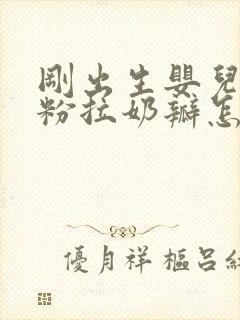 剛出生嬰兒
粉拉奶瓣怎
優月祥樞呂